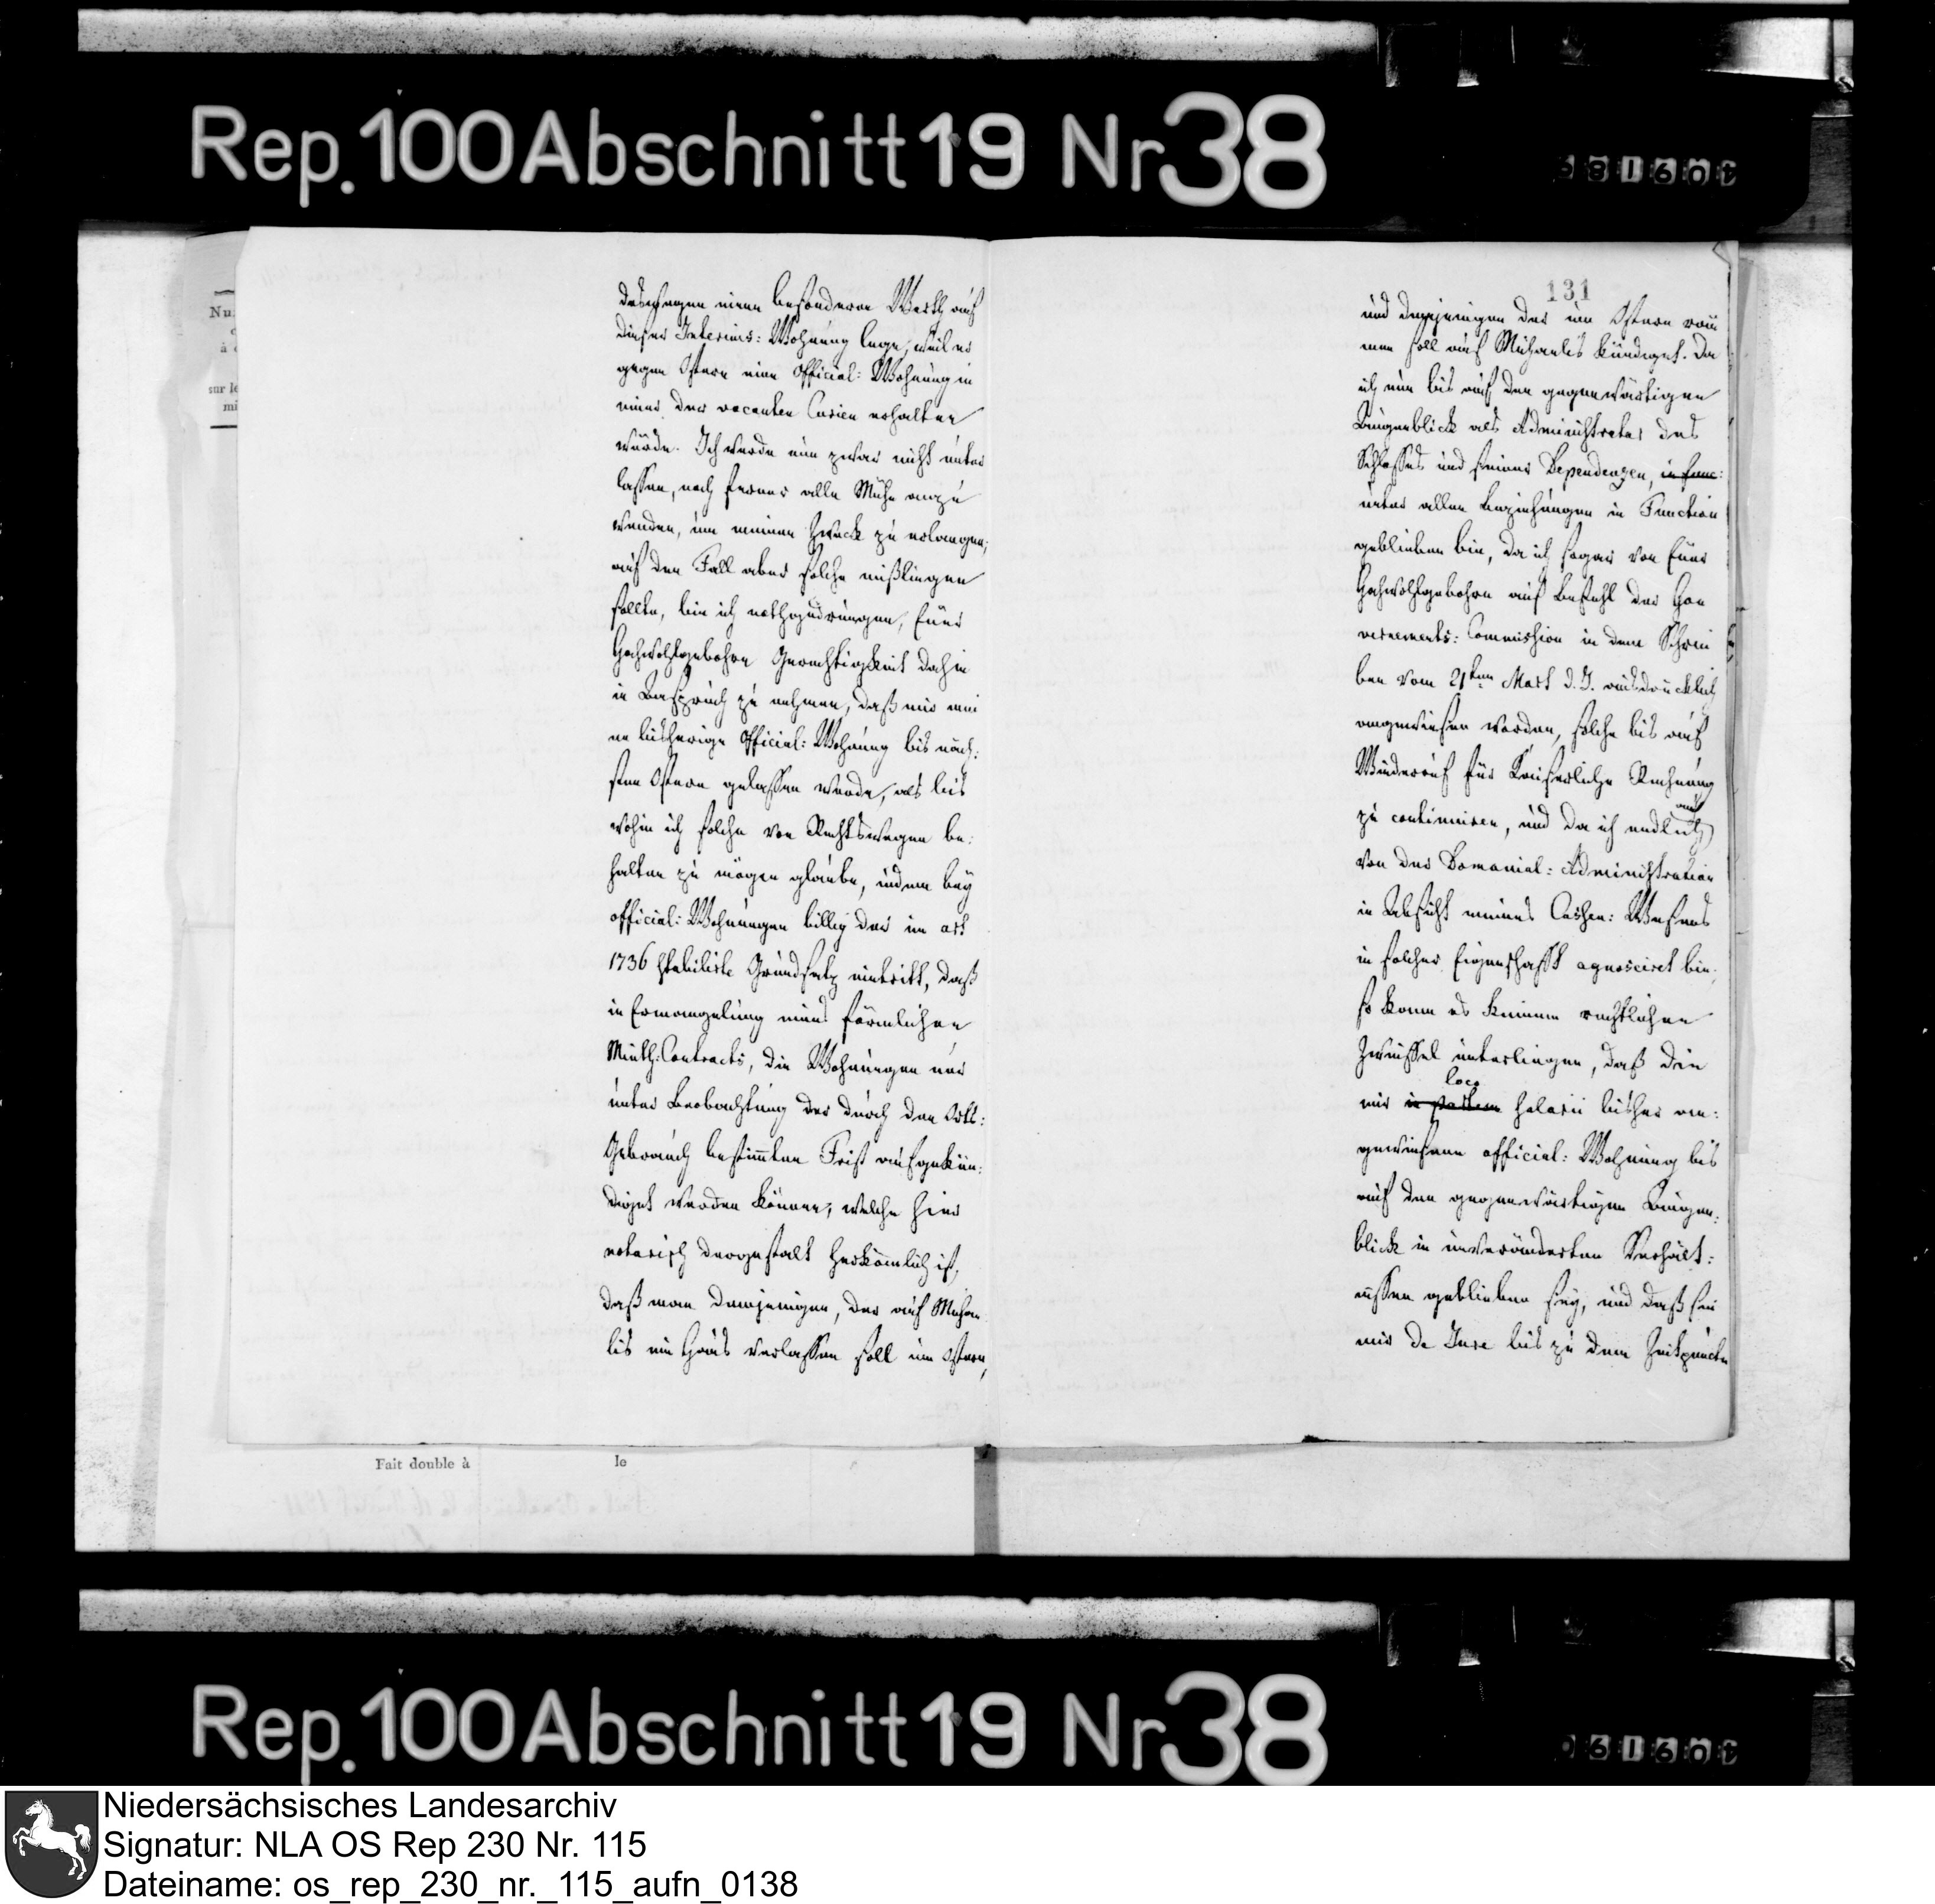 Rep.100 Abschnitt 19 Nr 38
deswegen einen besonderen Werth auf
dieser Interims: Wohnung lege, weil er
gegen Ostern eine Official: Wohnung in
einer der vacanten Curien erhalten
würde. Ich werde nun zwar nicht unter
lassen, noch ferner alle Mühe anzu
wenden, um meinen Zweck zu erlangen;
auf den Fall aber solche mißlingen
sollte, bin ich nothgedrungen, Euer
Hochwohlgebohrn Gerechtigkeit dahin
in Anspruch zu nehmen, daß mir mei
ne bisherige Official: Wohnung bis näch:
sten Ostern gelassen werde, als bis
wohin ich solche von Rechtswegen be:
halten zu mögen glaube, indem bey
official: Wohnungen billig der im art
1736 stabilirte Grundsatz eintritt, daß
in Ermangelung eines förmlichen
Mieth: Contracts, die Wohnungen nur
unter Beobachtung der durch den Orts:
Gebrauch bestimmten Frist aufgekün:
diget werden können, welche hier
notorisch dergestalt herkömlich ist,
daß man demjenigen, der auf Michae
lis ein Haus verlassen soll um Ostern,
131
und demjenigen der um Ostern räu
men soll auf Michaelis kündiget. Da
ich nun bis auf den gegenwärtigen
Augenblick als Administrator des
Schlosses und seiner Dependenzen, in func:
unter allen Beziehungen in Function
geblieben bin, da ich sogar von Euer
Hochwohlgebohrn auf Befehl der Gou
vernements: Commission in dem Schrei
ben vom 21ten Mart d. J. ausdrücklich
angewiesen worden, solche bis auf
Wiederruf für Kaiserliche Rechnung
zu continuiren, und da ich endlich auch
von der Domanial: Administration
in Absicht meines Cassen: Wesens
in solcher Eigenschafft agnosciret bin,
so kann es keinem rechtlichen
Zweiffel unterliegen, daß die
loco
mir in partem salarii bisher an:
gewiesene official: Wohnung bis
auf den gegenwärtigen Augen:
blick in unveränderten Verhält:
nissen geblieben sey, und daß sie
mir de Jure bis zu dem Zeitpuncte
Nu
sur le
mi
Fait double à le
Rep.100 Abschnitt 19 Nr 38
Niedersächsisches Landesarchiv
Signatur: NLA OS Rep 230 Nr. 115
Dateiname: os_rep_230_nr._115_aufn_0138